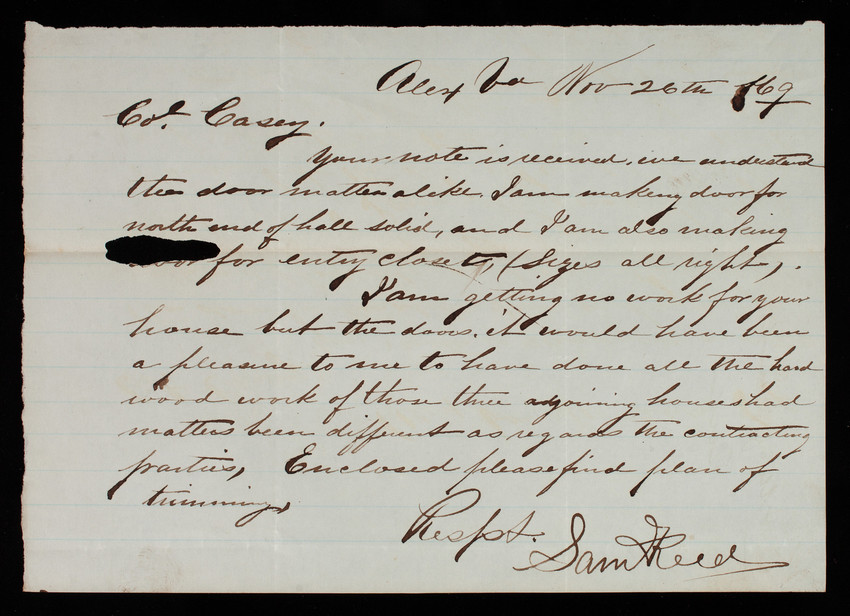 Alex Va Nov 26th /69
Col. Casey.
Your note is received. we understand
the door matter alike. I am making door for
north end of hall solid, and I am also making
for entry closet, (Sizes all right).
I am getting no work for your
house but the doors. it would have been
a pleasure to me to have done all the hard
wood work of those three adjoining houses had
matters been different as regards the contracting
parties, Enclosed please find plan of
trimming,
Respt.
Sam Reed